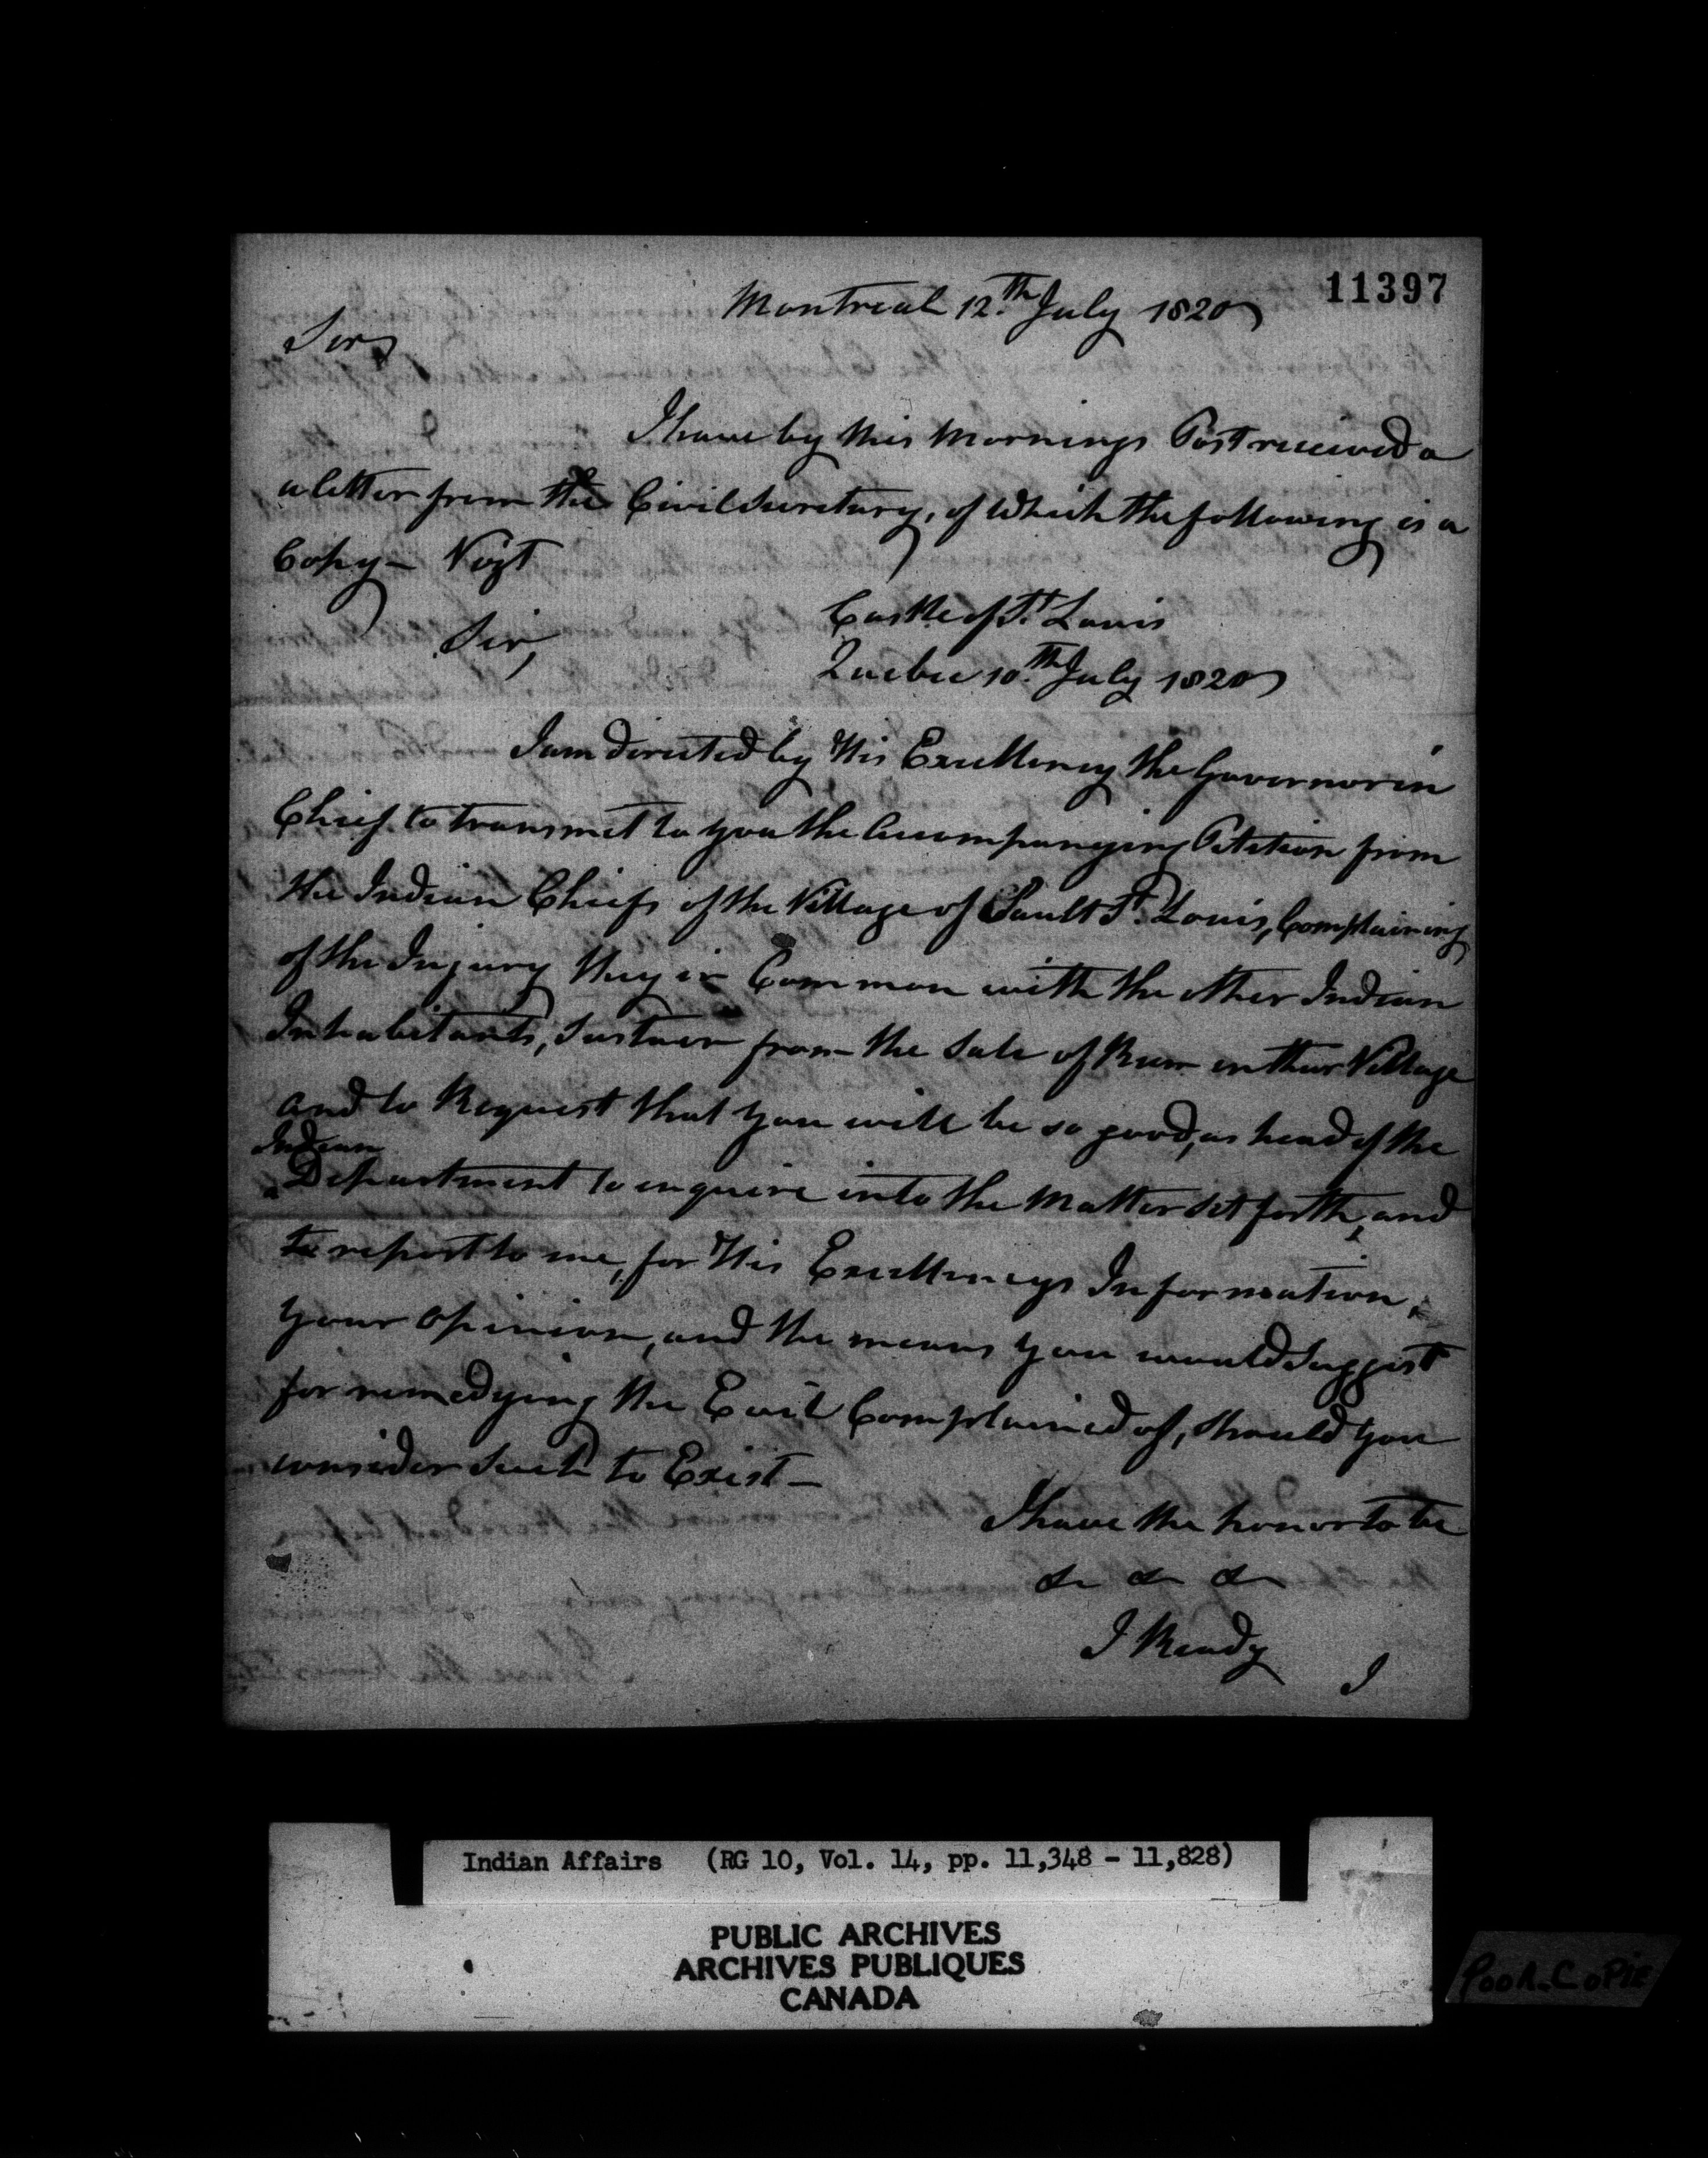 11397
Montreal 12th July 1820
Sir,
I have by this Mornings Post received a
a letter from the Civil Secretary, of which the following is a
Copy – Vizt
Castle of St. Louis
Sir,
Quebec 10th July 1820
I am directed by His Excellency the Governor in
Chief to transmit to you the Accompanying Petition from
the Indian Chiefs of the Village of Sault St. Louis, Complaining
of the Injury they in Common with the other Indian
Inhabitants, Sustain from the Sale of Rum in their Village
and to Request that you will be so good, as head of the
Indian
Department to enquire into the Matter set forth, and
to report to me, for His Excellencys Information,
your opinion, and the means you would Suggest
for remedying the Evil Complained of, should you
consider Such to Exist –
I have the honor to be
&c &c &c
J Ready
I
Indian Affairs (RG 10, Vol. 14, pp. 11,348 - 11,828)
PUBLIC ARCHIVES
ARCHIVES PUBLIQUES
CANADA
POOR COPIE